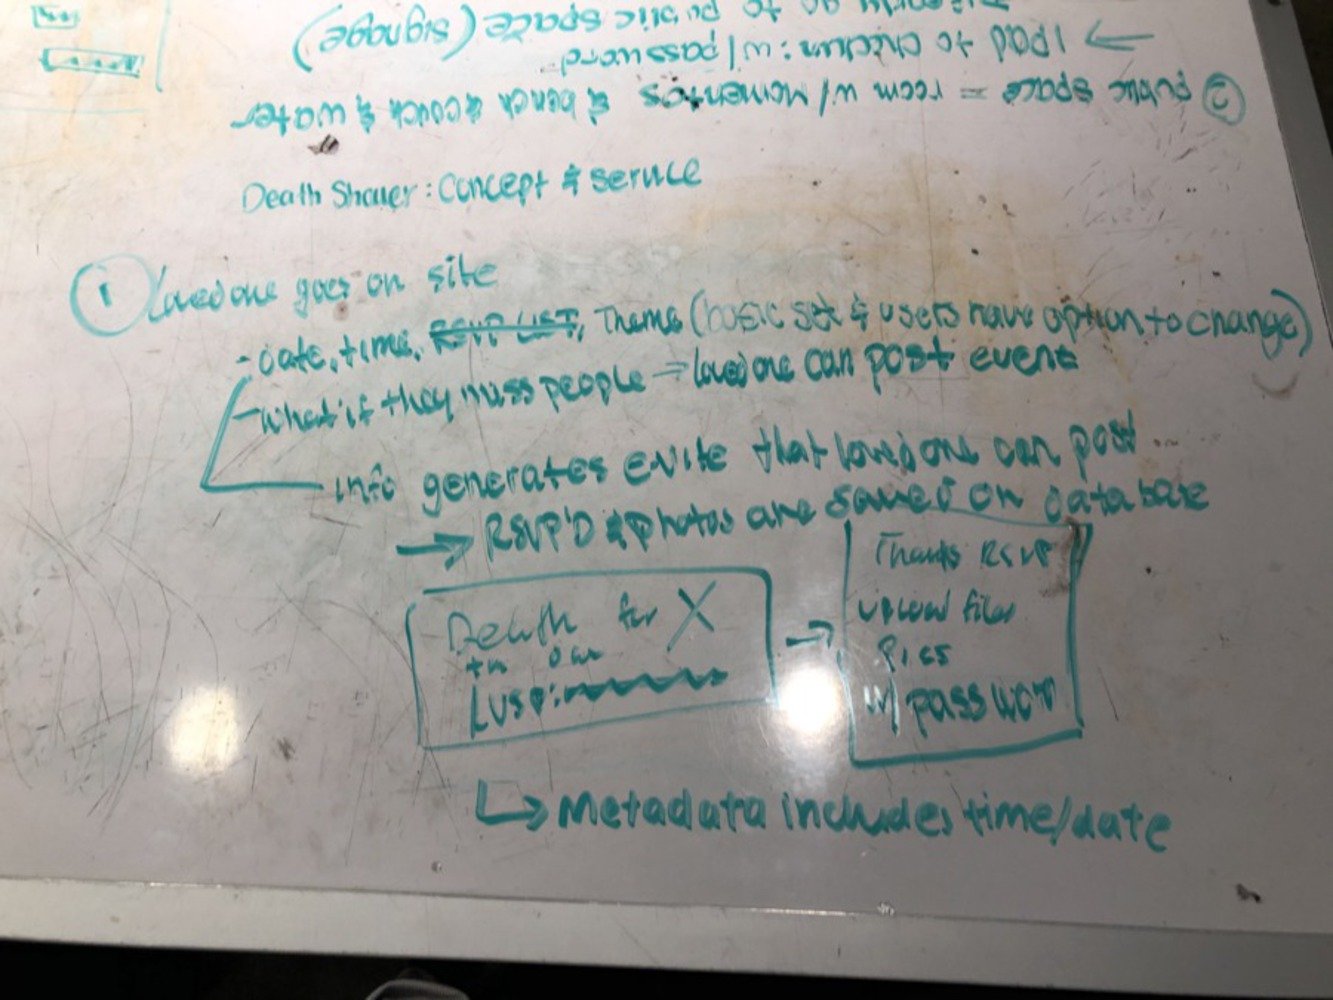 Death Shower: Concept & service
① loved one goes on site
- date, time, RSVP LIST, Theme (basic set & users have option to change)
- What if they miss people → loved one can post event
info generates evite that loved one can post
→ RSVP'D & photos are saved on database
Death for X
LUSP:
Thanks RSVP
upload files
w/ password
↳ Metadata includes time/date
② public space = room w/ Mementos & bench & couch & water
→ IPAD to checkin: w/ password
go to public space (signage)